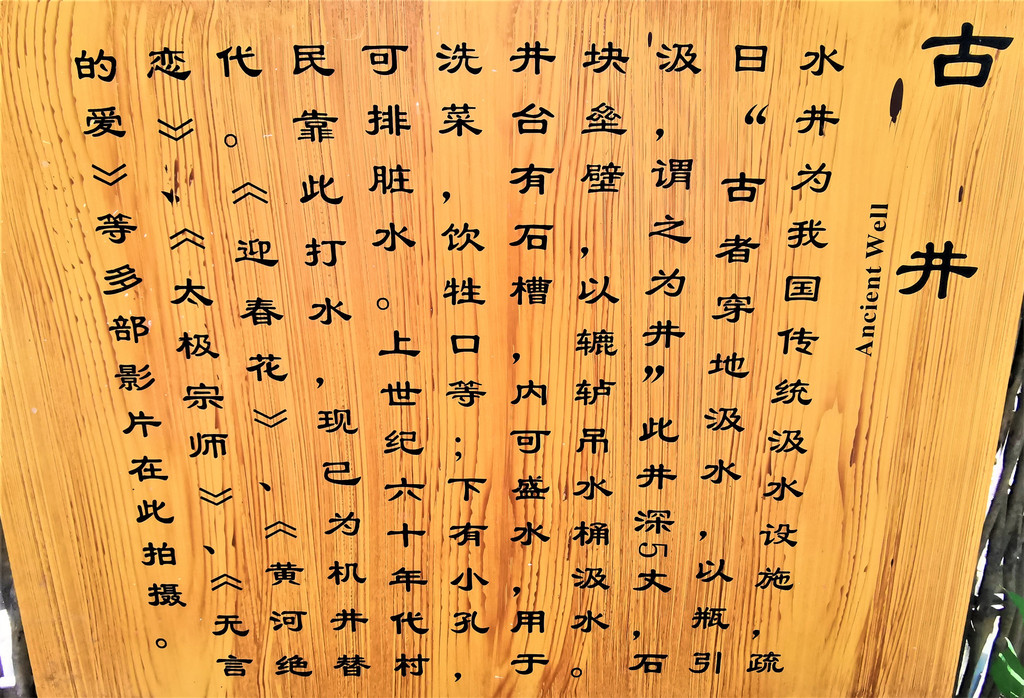 古井
Ancient Well
水井为我国传统汲水设施，疏
曰“古者穿地汲水，以瓶引
汲，谓之为井”此井深5丈，石
块垒壁，以辘轳吊水桶汲水。
井台有石槽，内可盛水，用于
洗菜，饮牲口等；下有小孔，
可排脏水。上世纪六十年代村
民靠此打水，现已为机井替
代。《迎春花》、《黄河绝
恋》、《太极宗师》、《无言
的爱》等多部影片在此拍摄。